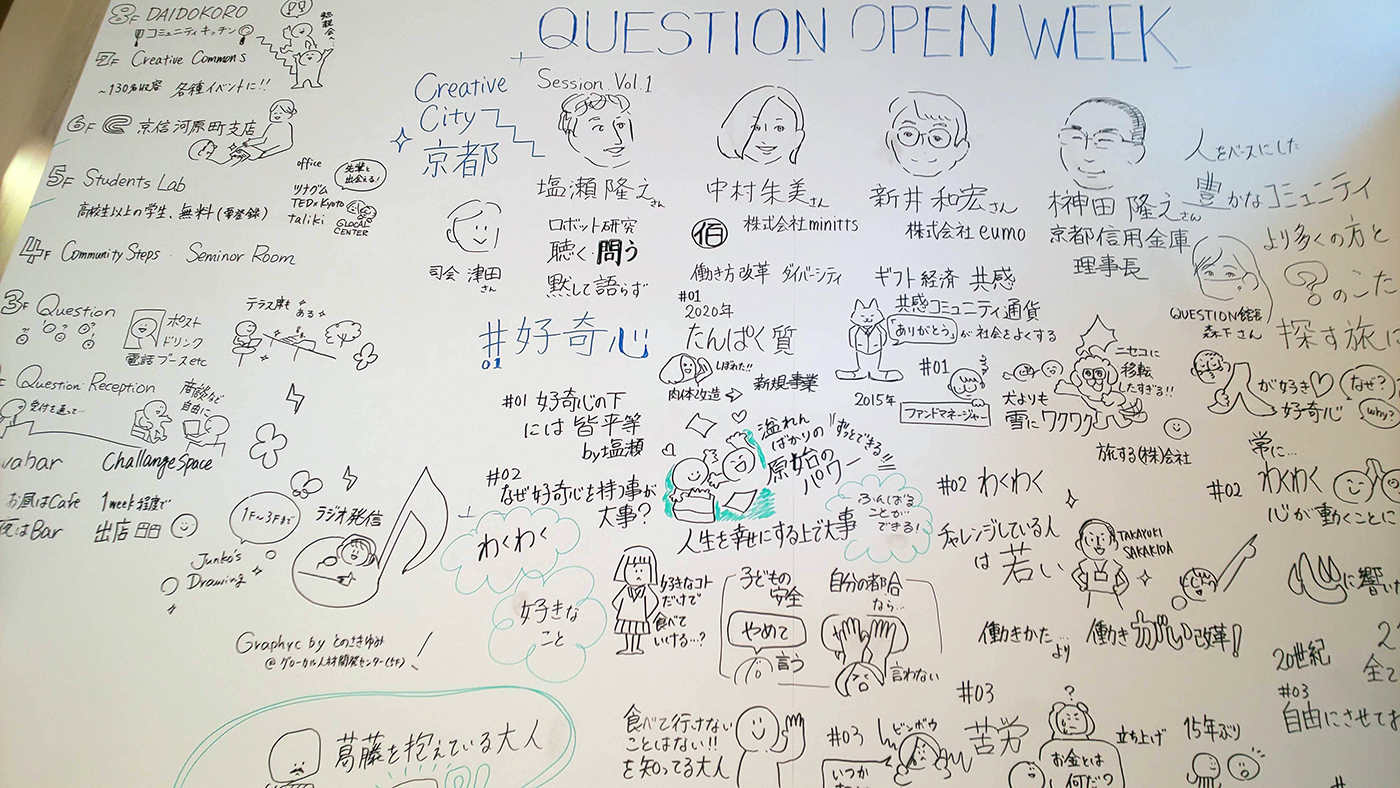 QUESTION OPEN WEEK
8F DAIDOKORO
コミュニティキッチン
7F Creative Commons
~130名収容 各種イベントに!!
6F 京信河原町支店
5F Students Lab
高校生以上の学生、無料(要登録)
office
ツナグム
TEDxKyoto
taliki
先輩と
出会える!
GLOCAL
CENTER
4F Community Steps・Seminar Room
3F Question
ポスト
ドリンク
電話ブースetc
テラス席も
ある
Question Reception
受付を通って…
商談など
自由に
Challange Space
お昼はCafe
夜はBar
1week程度で
出店
1F~3Fまで
ラジオ発信
Junko's
Drawing
Graphyc by とのさきゆみ
@グローカル人材開発センター(5F)
Creative
City
京都
Session Vol.1
司会 津田
さん
塩瀬隆之さん
ロボット研究
聴く・問う
黙して語らず
中村朱美さん
佰 株式会社minitts
働き方改革 ダイバーシティ
新井和宏さん
株式会社eumo
ギフト経済 共感
共感コミュニティ通貨
「ありがとう」が社会をよくする
榊田隆之さん
京都信用金庫
理事長
人をベースにした
豊かなコミュニティ
より多くの方と
?のこた
探す旅に
QUESTION館長
森下さん
#好奇心
01
#01 好奇心の下
には皆平等
by塩瀬
#02
なぜ好奇心を持つ事が
大事?
わくわく
好きな
こと
好きなコト
だけで
食べて
いける…?
#01
2020年
たんぱく質
しぼれた!!
肉体改造
新規事業
溢れん
ばかりの
原始の
パワー
ずっとできる!!
人生を幸せにする上で大事
ふんばる
ことが
できる!
子どもの
安全
やめて
言う
自分の都合
なら…
言わない
#01
2015年
ファンドマネージャー
犬よりも
雪にワクワク
ニセコに
移転
したすぎる!!
旅する(株)会社
#02 わくわく
チャレンジしている人
は若い
TAKAYUKI
SAKAKIDA
働きかた…
より
働きがい改革!
人が好き
好奇心
なぜ?
Why?
常に…
#02 わくわく
心が動くことに
に響い
20世紀
全て
#03
自由にさせてあ
葛藤を抱えている大人
食べて行けない
ことはない!!
を知ってる大人
#03
ビンボウ
いつか
#03
苦労
?
お金とは
何だ?
立ち上げ
15年ぶり